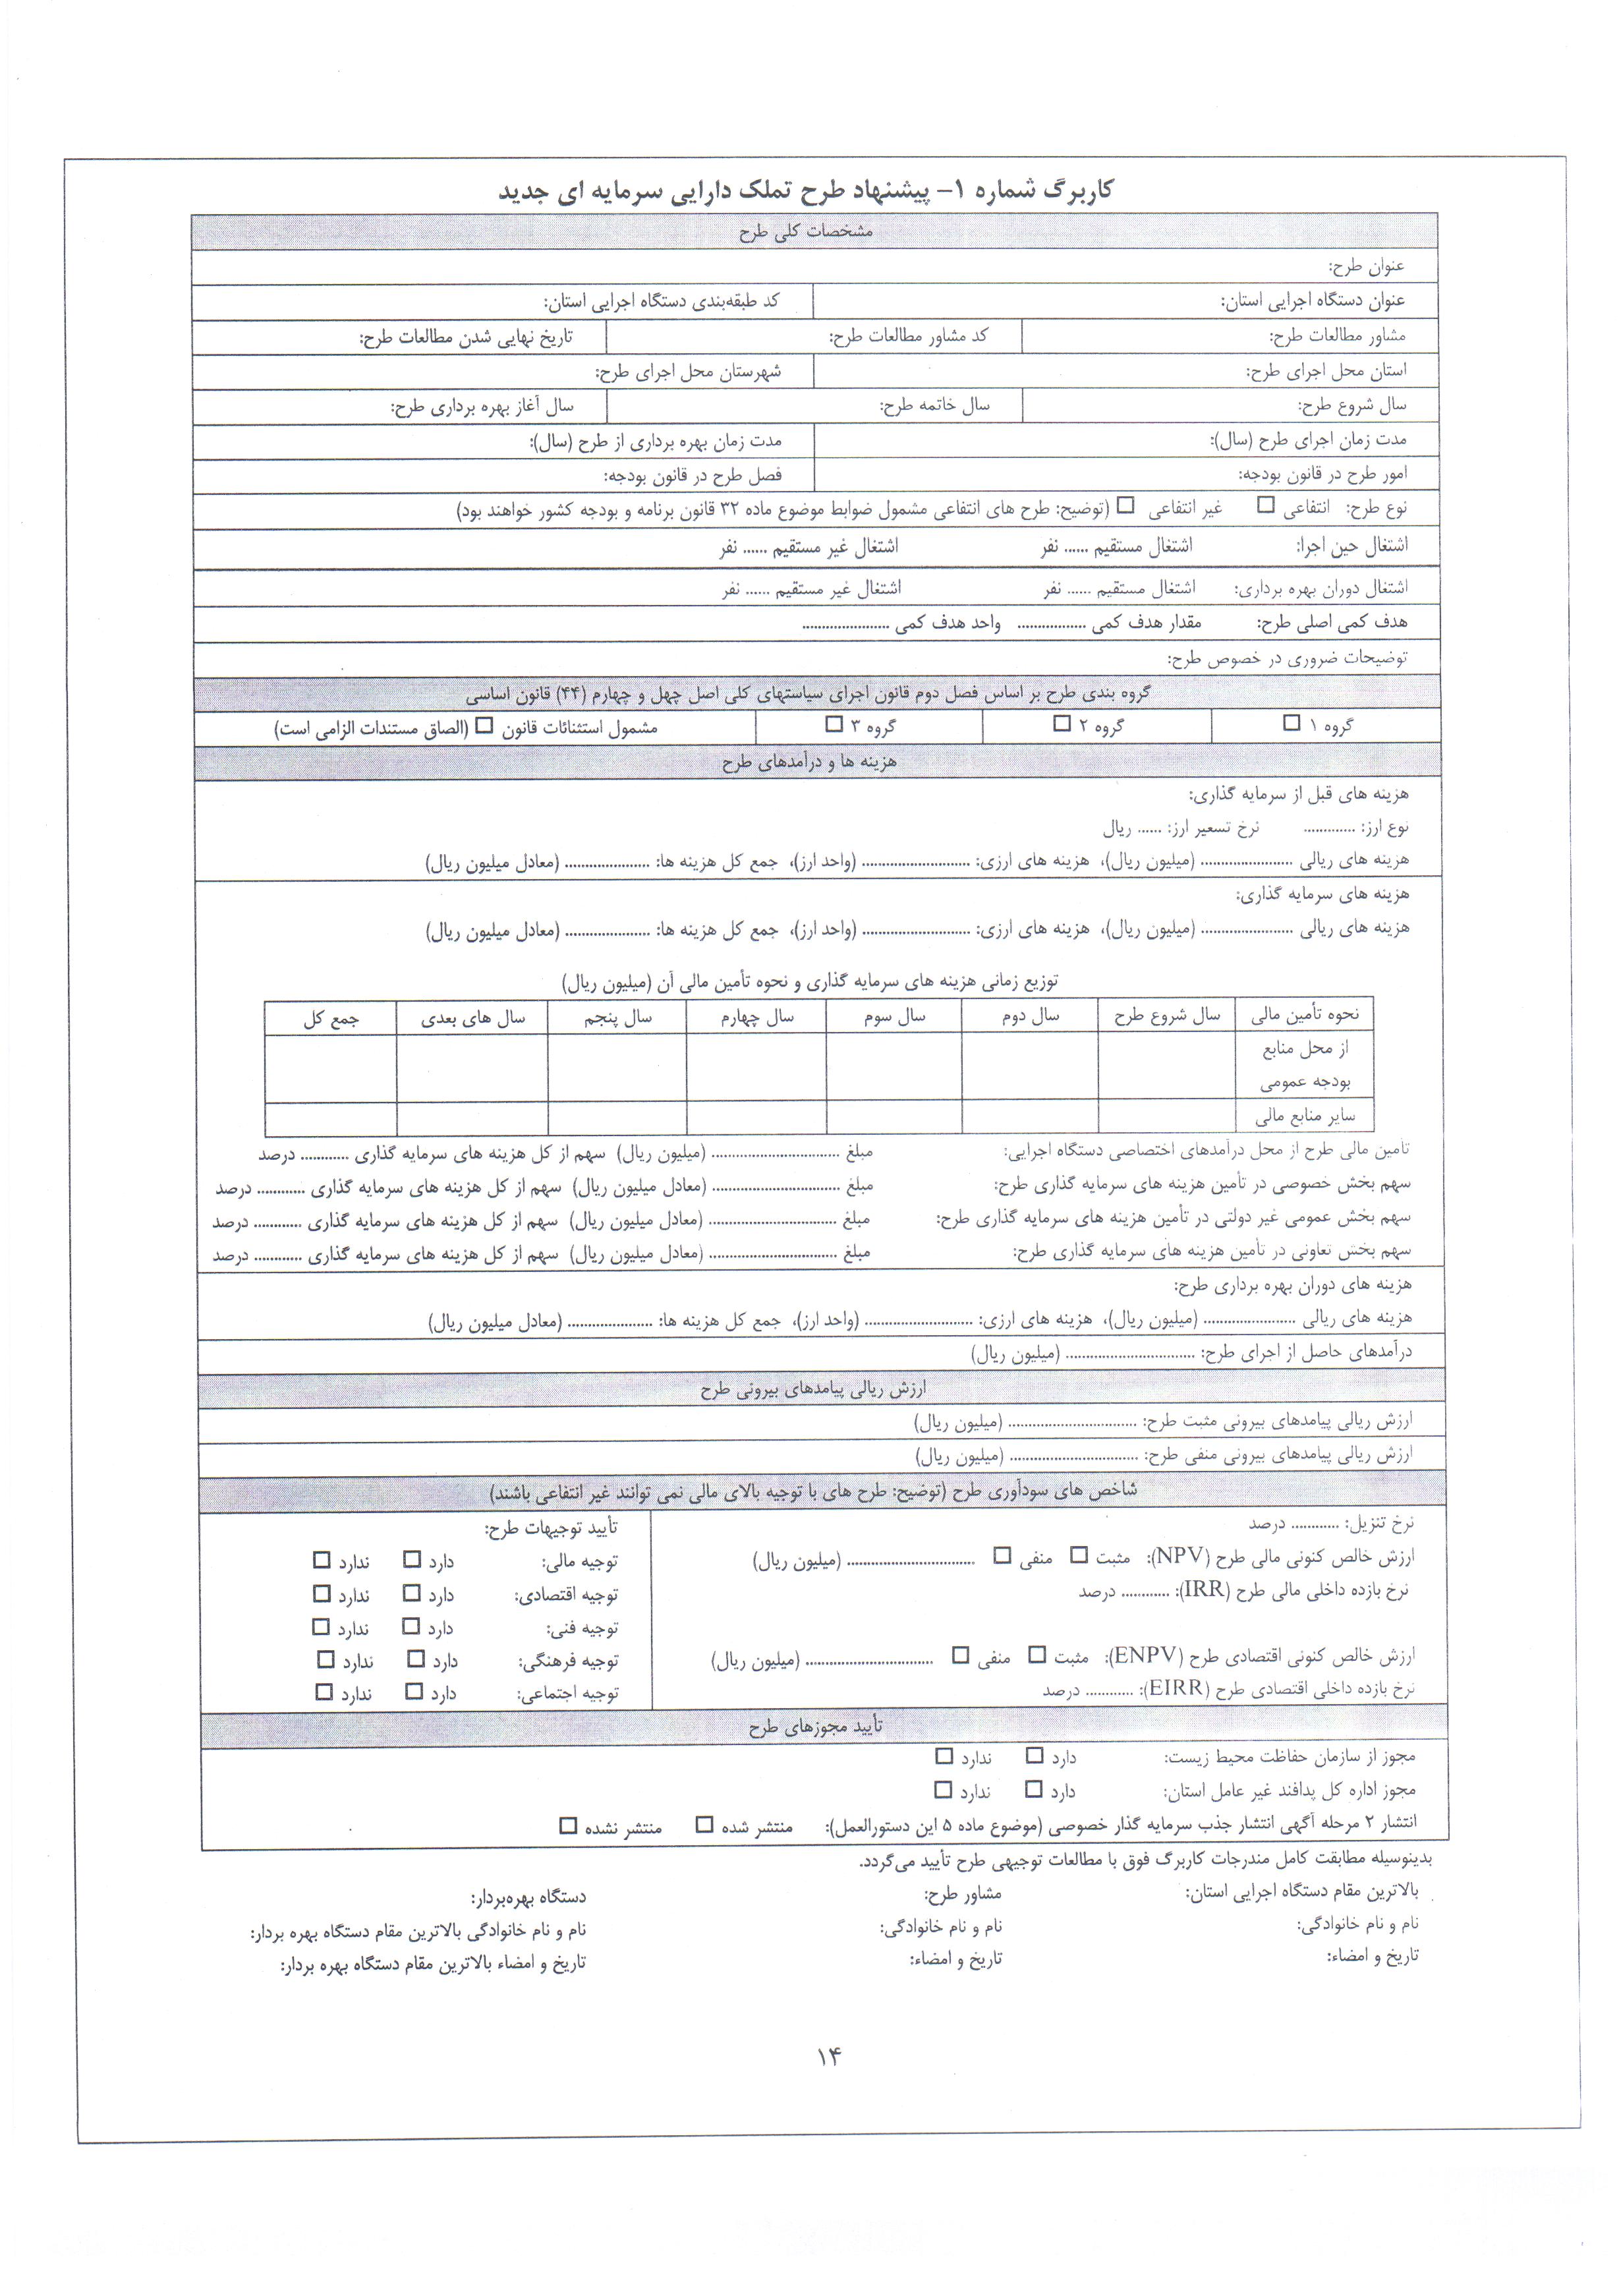 کاربرگ شماره ۱- پیشنهاد طرح تملک دارایی سرمایه ای جدید
مشخصات کلی طرح
عنوان طرح:
عنوان دستگاه اجرایی استان: کد طبقه‌بندی دستگاه اجرایی استان:
مشاور مطالعات طرح: کد مشاور مطالعات طرح: تاریخ نهایی شدن مطالعات طرح:
استان محل اجرای طرح: شهرستان محل اجرای طرح:
سال شروع طرح: سال خاتمه طرح: سال آغاز بهره برداری طرح:
مدت زمان اجرای طرح (سال): مدت زمان بهره برداری از طرح (سال):
امور طرح در قانون بودجه: فصل طرح در قانون بودجه:
نوع طرح: انتفاعی □ غیر انتفاعی □ (توضیح: طرح های انتفاعی مشمول ضوابط موضوع ماده ۳۲ قانون برنامه و بودجه کشور خواهند بود)
اشتغال حین اجرا: اشتغال مستقیم ...... نفر اشتغال غیر مستقیم ...... نفر
اشتغال دوران بهره برداری: اشتغال مستقیم ...... نفر اشتغال غیر مستقیم ...... نفر
هدف کمی اصلی طرح: مقدار هدف کمی ................. واحد هدف کمی ......................
توضیحات ضروری در خصوص طرح:
گروه بندی طرح بر اساس فصل دوم قانون اجرای سیاستهای کلی اصل چهل و چهارم (۴۴) قانون اساسی
گروه ۱ □ گروه ۲ □ گروه ۳ □ مشمول استثنائات قانون □ (الصاق مستندات الزامی است)
هزینه ها و درآمدهای طرح
هزینه های قبل از سرمایه گذاری:
نوع ارز: ............. نرخ تسعیر ارز: ...... ریال
هزینه های ریالی ....................... (میلیون ریال)، هزینه های ارزی: ........................... (واحد ارز)، جمع کل هزینه ها: ..................... (معادل میلیون ریال)
هزینه های سرمایه گذاری:
هزینه های ریالی ....................... (میلیون ریال)، هزینه های ارزی: ........................... (واحد ارز)، جمع کل هزینه ها: ..................... (معادل میلیون ریال)
توزیع زمانی هزینه های سرمایه گذاری و نحوه تأمین مالی آن (میلیون ریال)
نحوه تأمین مالی سال شروع طرح سال دوم سال سوم سال چهارم سال پنجم سال های بعدی جمع کل
از محل منابع
بودجه عمومی
سایر منابع مالی
تأمین مالی طرح از محل درآمدهای اختصاصی دستگاه اجرایی: مبلغ ................................ (میلیون ریال) سهم از کل هزینه های سرمایه گذاری ............ درصد
سهم بخش خصوصی در تأمین هزینه های سرمایه گذاری طرح: مبلغ ................................ (معادل میلیون ریال) سهم از کل هزینه های سرمایه گذاری ............ درصد
سهم بخش عمومی غیر دولتی در تأمین هزینه های سرمایه گذاری طرح: مبلغ ................................ (معادل میلیون ریال) سهم از کل هزینه های سرمایه گذاری ............ درصد
سهم بخش تعاونی در تأمین هزینه های سرمایه گذاری طرح: مبلغ ................................ (معادل میلیون ریال) سهم از کل هزینه های سرمایه گذاری ............ درصد
هزینه های دوران بهره برداری طرح:
هزینه های ریالی ....................... (میلیون ریال)، هزینه های ارزی: ........................... (واحد ارز)، جمع کل هزینه ها: ..................... (معادل میلیون ریال)
درآمدهای حاصل از اجرای طرح: ................................ (میلیون ریال)
ارزش ریالی پیامدهای بیرونی طرح
ارزش ریالی پیامدهای بیرونی مثبت طرح: ................................ (میلیون ریال)
ارزش ریالی پیامدهای بیرونی منفی طرح: ................................ (میلیون ریال)
شاخص های سودآوری طرح (توضیح: طرح های با توجیه بالای مالی نمی توانند غیر انتفاعی باشند)
نرخ تنزیل: ............ درصد
ارزش خالص کنونی مالی طرح (NPV): مثبت □ منفی □ ................................ (میلیون ریال)
نرخ بازده داخلی مالی طرح (IRR): ............ درصد
ارزش خالص کنونی اقتصادی طرح (ENPV): مثبت □ منفی □ ................................ (میلیون ریال)
نرخ بازده داخلی اقتصادی طرح (EIRR): ............ درصد
تأیید توجیهات طرح:
توجیه مالی: دارد □ ندارد □
توجیه اقتصادی: دارد □ ندارد □
توجیه فنی: دارد □ ندارد □
توجیه فرهنگی: دارد □ ندارد □
توجیه اجتماعی: دارد □ ندارد □
تأیید مجوزهای طرح
مجوز از سازمان حفاظت محیط زیست: دارد □ ندارد □
مجوز اداره کل پدافند غیر عامل استان: دارد □ ندارد □
انتشار ۲ مرحله آگهی انتشار جذب سرمایه گذار خصوصی (موضوع ماده ۵ این دستورالعمل): منتشر شده □ منتشر نشده □
بدینوسیله مطابقت کامل مندرجات کاربرگ فوق با مطالعات توجیهی طرح تأیید می‌گردد.
بالاترین مقام دستگاه اجرایی استان: مشاور طرح: دستگاه بهره‌بردار:
نام و نام خانوادگی: نام و نام خانوادگی: نام و نام خانوادگی بالاترین مقام دستگاه بهره بردار:
تاریخ و امضاء: تاریخ و امضاء: تاریخ و امضاء بالاترین مقام دستگاه بهره بردار:
۱۴